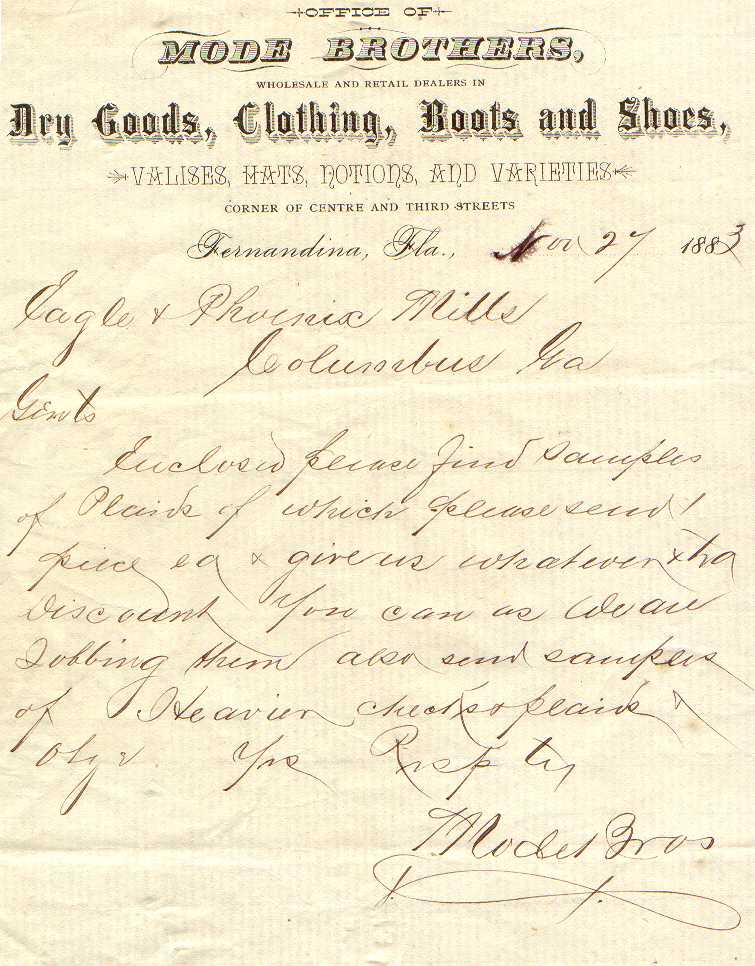 OFFICE OF
MODE BROTHERS,
WHOLESALE AND RETAIL DEALERS IN
Dry Goods, Clothing, Boots and Shoes,
VALISES, HATS, NOTIONS, AND VARIETIES
CORNER OF CENTRE AND THIRD STREETS
Fernandina, Fla., Nov 27 1883
Eagle & Phoenix Mills
Columbus Ga
Gents
Enclosed please find samples
of Plaids of which please send 1
piece ea & give us whatever xtra
Discount You can as We are
Jobbing them also send samples
of Heavier checks & plaids &
Olg Yrs Resp ty
Mode Bros